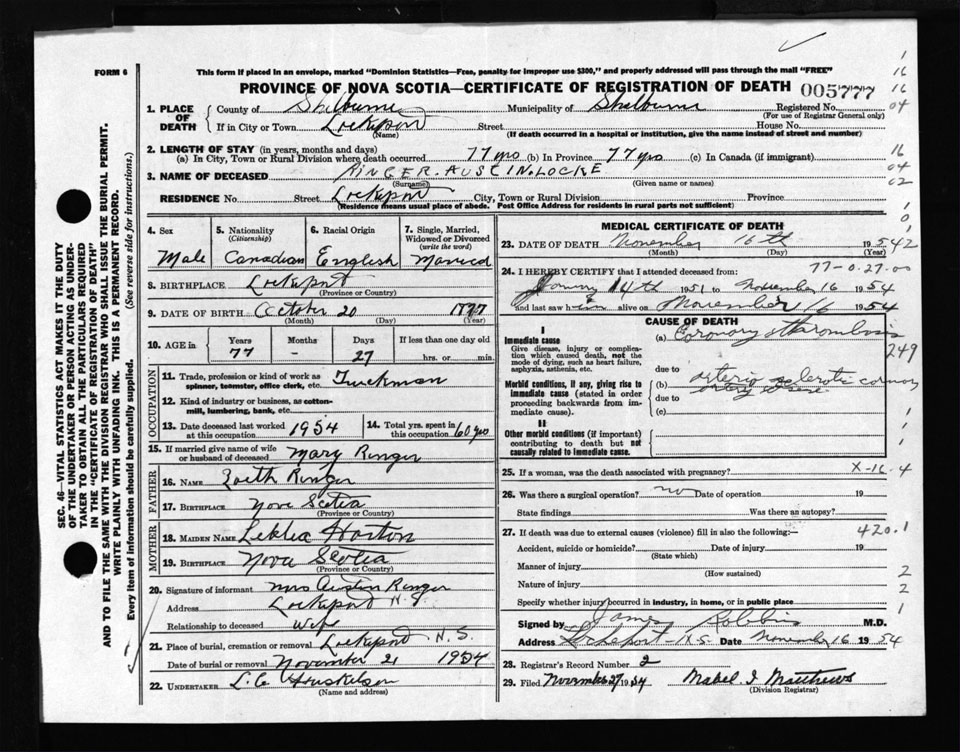 FORM 6
This form if placed in an envelope, marked "Dominion Statistics—Free, penalty for improper use $300," and properly addressed will pass through the mail "FREE"
PROVINCE OF NOVA SCOTIA—CERTIFICATE OF REGISTRATION OF DEATH 005777
1. PLACE OF DEATH
County of Shelburne Municipality of Shelburne Registered No.
(For use of Registrar General only)
If in City or Town Lockeport Street House No.
(Name) (If death occurred in a hospital or institution, give the name instead of street and number)
2. LENGTH OF STAY (in years, months and days)
(a) In City, Town or Rural Division where death occurred 77 yrs (b) In Province 77 yrs (c) In Canada (if immigrant)
3. NAME OF DECEASED RINGER. AUSTIN. LOCKE
(Surname) (Given name or names)
RESIDENCE No Street Lockeport City, Town or Rural Division Province
(Residence means usual place of abode. Post Office Address for residents in rural parts not sufficient)
4. Sex Male
5. Nationality (Citizenship) Canadian
6. Racial Origin English
7. Single, Married, Widowed or Divorced (write the word) Married
8. BIRTHPLACE Lockeport
(Province or Country)
9. DATE OF BIRTH October 20 1877
(Month) (Day) (Year)
10. AGE in Years Months Days If less than one day old
77 - 27 hrs. or min.
OCCUPATION
11. Trade, profession or kind of work as spinner, teamster, office clerk, etc. Truckman
12. Kind of industry or business, as cotton-mill, lumbering, bank, etc.
13. Date deceased last worked at this occupation 1954
14. Total yrs. spent in this occupation 60 yrs
15. If married give name of wife or husband of deceased Mary Ringer
FATHER
16. NAME Ringer
17. BIRTHPLACE Nova Scotia
(Province or Country)
MOTHER
18. MAIDEN NAME Horton
19. BIRTHPLACE Nova Scotia
(Province or Country)
20. Signature of informant Mrs Austin Ringer
Address Lockeport N.S.
Relationship to deceased Wife
21. Place of burial, cremation or removal Lockeport N.S.
Date of burial or removal November 21 1954
22. UNDERTAKER L.C.
(Name and address)
MEDICAL CERTIFICATE OF DEATH
23. DATE OF DEATH November 16th 1954
(Month) (Day)
77-0-27-00
24. I HEREBY CERTIFY that I attended deceased from:
14th 1951 to November 16 1954
and last saw him alive on November 16 1954
CAUSE OF DEATH
I
Immediate cause
Give disease, injury or complication which caused death, not the mode of dying, such as heart failure, asphyxia, asthenia, etc.
(a) Coronary thrombosis
249
due to
Morbid conditions, if any, giving rise to Immediate cause (stated in order proceeding backwards from immediate cause).
(b) arterio sclerotic coronary artery disease
due to
(c)
II
Other morbid conditions (if important) contributing to death but not causally related to immediate cause.
25. If a woman, was the death associated with pregnancy? X-16.4
26. Was there a surgical operation? no Date of operation 19
State findings Was there an autopsy?
27. If death was due to external causes (violence) fill in also the following:— 420.1
Accident, suicide or homicide? Date of injury 19
(State which)
Manner of injury
(How sustained)
Nature of injury
Specify whether injury occurred in industry, in home, or in public place
Signed by James Robbins M.D.
Address Lockeport N.S. Date November 16 1954
28. Registrar's Record Number 2
29. Filed November 27 1954 Mabel I Matthews
(Division Registrar)
SEC. 46—VITAL STATISTICS ACT MAKES IT THE DUTY
OF THE UNDERTAKER OR PERSON ACTING AS UNDER-
TAKER TO OBTAIN ALL THE PARTICULARS REQUIRED
IN THE "CERTIFICATE OF REGISTRATION OF DEATH"
AND TO FILE THE SAME WITH THE DIVISION REGISTRAR WHO SHALL ISSUE THE BURIAL PERMIT.
WRITE PLAINLY WITH UNFADING INK. THIS IS A PERMANENT RECORD.
Every item of information should be carefully supplied. (See reverse side for instructions.)
1
16
16
04
16
04
02